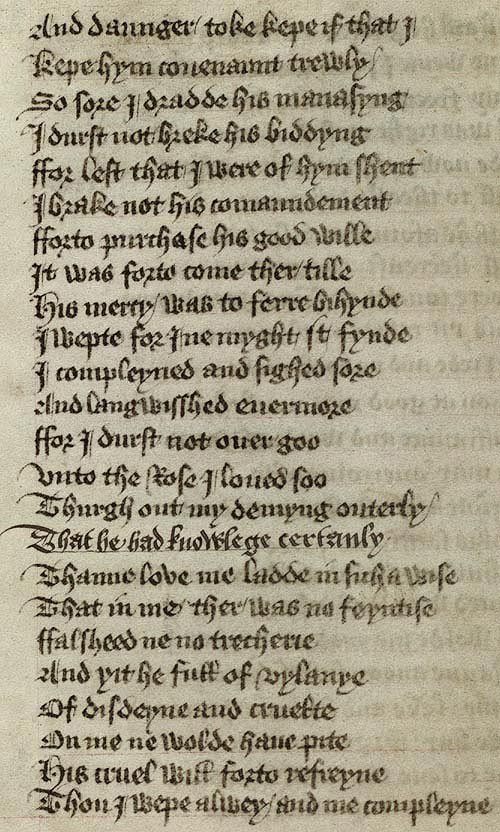 And daunger toke kepe if that I
Kepe hym couenaunt trewly
So sore I dradde his manasyng
I durst not breke his biddyng
ffor lest that I were of hym shent
I brake not his comaundement
fforto purchase his good wille
It was forto come ther tille
His mercy was to ferre bihynde
I wepte for I ne myght it fynde
I compleyned and sighed sore
And langwisshed euermore
ffor I durst not ouer goo
Vnto the Rose I loued soo
Thurgh out my demyng outerly
That he had knowlege certanly
Thanne love me ladde in sich a wise
That in me ther was no feyntise
ffalsheed ne no trecherie
And yit he full of vylanye
Of disdeyne and cruelte
On me ne wolde haue pite
His cruel will forto refreyne
Thou I wepe alwey and me compleyne